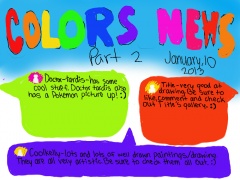 COLORS NEWS
Part 2
January, 10
2013
Doctor-tardis-has some
cool stuff. Doctor tardis also
has a Pokemon picture up! :)
Title-very good at
drawing. Be sure to
like, comment and check
out Title's gallery. :)
Coolkelly-lots and lots of well drawn paintings/drawing.
They are all very artistic. Be sure to check them all out. :)